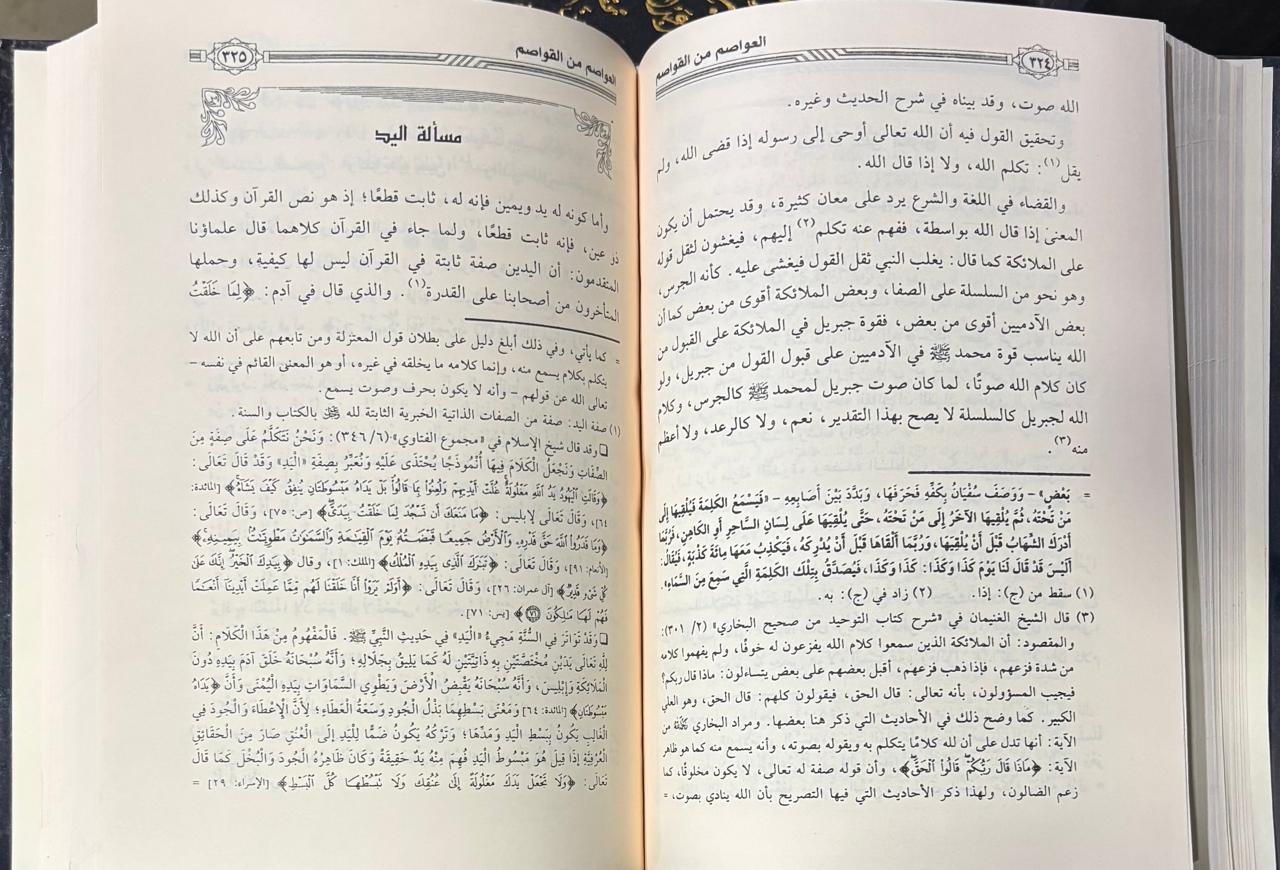 العواصم من القواصم
٣٢٤
الله صوت، وقد بيناه في شرح الحديث وغيره.
وتحقيق القول فيه أن الله تعالى أوحى إلى رسوله إذا قضى الله، ولم
يقل(١): تكلم الله، ولا إذا قال الله.
والقضاء في اللغة والشرع يرد على معان كثيرة، وقد يحتمل أن يكون
المعنى إذا قال الله بواسطة، ففهم عنه تكلم(٢) إليهم، فيغشون لثقل قوله
على الملائكة كما قال: يغلب النبي ثقل القول فيغشى عليه. كأنه الجرس،
وهو نحو من السلسلة على الصفا، وبعض الملائكة أقوى من بعض كما أن
بعض الآدميين أقوى من بعض، فقوة جبريل في الملائكة على القبول من
الله يناسب قوة محمد ﷺ في الآدميين على قبول القول من جبريل، ولو
كان كلام الله صوتًا، لما كان صوت جبريل لمحمد ﷺ كالجرس، وكلام
الله لجبريل كالسلسلة لا يصح بهذا التقدير، نعم، ولا كالرعد، ولا أعظم
منه(٣).
= بَعْضٍ» - وَوَصَفَ سُفْيَانُ بِكَفِّهِ فَحَرَفَهَا، وَبَدَّدَ بَيْنَ أَصَابِعِهِ - «فَيَسْمَعُ الكَلِمَةَ فَيُلْقِيهَا إِلَى
مَنْ تَحْتَهُ، ثُمَّ يُلْقِيهَا الآخَرُ إِلَى مَنْ تَحْتَهُ، حَتَّى يُلْقِيَهَا عَلَى لِسَانِ السَّاحِرِ أَوِ الكَاهِنِ، فَرُبَّمَا
أَدْرَكَ الشِّهَابُ قَبْلَ أَنْ يُلْقِيَهَا، وَرُبَّمَا أَلْقَاهَا قَبْلَ أَنْ يُدْرِكَهُ، فَيَكْذِبُ مَعَهَا مِائَةَ كَذْبَةٍ، فَيُقَالُ:
أَلَيْسَ قَدْ قَالَ لَنَا يَوْمَ كَذَا وَكَذَا: كَذَا وَكَذَا، فَيُصَدَّقُ بِتِلْكَ الكَلِمَةِ الَّتِي سَمِعَ مِنَ السَّمَاءِ.
(١) سقط من (ج): إذا. (٢) زاد في (ج): به.
(٣) قال الشيخ الغنيمان في «شرح كتاب التوحيد من صحيح البخاري» (٢/ ٣٠١):
والمقصود: أن الملائكة الذين سمعوا كلام الله يفزعون له خوفًا، ولم يفهموا كلامه
من شدة فزعهم، فإذا ذهب فزعهم، أقبل بعضهم على بعض يتساءلون: ماذا قال ربكم؟
فيجيب المسؤولون، بأنه تعالى: قال الحق، فيقولون كلهم: قال الحق، وهو العلي
الكبير. كما وضح ذلك في الأحاديث التي ذكر هنا بعضها. ومراد البخاري رَحِمَهُ اللهُ من
الآية: أنها تدل على أن لله كلامًا يتكلم به ويقوله بصوته، وأنه يسمع منه كما هو ظاهر
الآية: ﴿مَاذَا قَالَ رَبُّكُمْ قَالُوا الْحَقَّ﴾، وأن قوله صفة له تعالى، لا يكون مخلوقًا، كما
زعم الضالون، ولهذا ذكر الأحاديث التي فيها التصريح بأن الله ينادي بصوت، =
العواصم من القواصم
٣٢٥
مسألة اليد
وأما كونه له يد ويمين فإنه له، ثابت قطعًا؛ إذ هو نص القرآن وكذلك
ذو عين، فإنه ثابت قطعًا، ولما جاء في القرآن كلاهما قال علماؤنا
المتقدمون: أن اليدين صفة ثابتة في القرآن ليس لها كيفية، وحملها
المتأخرون من أصحابنا على القدرة(١). والذي قال في آدم: ﴿لِمَا خَلَقْتُ
= كما يأتي، وفي ذلك أبلغ دليل على بطلان قول المعتزلة ومن تابعهم على أن الله لا
يتكلم بكلام يسمع منه، وإنما كلامه ما يخلقه في غيره، أو هو المعنى القائم في نفسه -
تعالى الله عن قولهم - وأنه لا يكون بحرف وصوت يسمع.
(١) صفة اليد: صفة من الصفات الذاتية الخبرية الثابتة لله عَزَّ وَجَلَّ بالكتاب والسنة.
❑ وقد قال شيخ الإسلام في «مجموع الفتاوى» (٦/ ٣٤٦): وَنَحْنُ نَتَكَلَّمُ عَلَى صِفَةٍ مِنَ
الصِّفَاتِ وَنَجْعَلُ الْكَلَامَ فِيهَا أُنْمُوذَجًا يُحْتَذَى عَلَيْهِ وَنُعَبِّرُ بِصِفَةِ «الْيَدِ» وَقَدْ قَالَ تَعَالَى:
﴿وَقَالَتِ الْيَهُودُ يَدُ اللَّهِ مَغْلُولَةٌ غُلَّتْ أَيْدِيهِمْ وَلُعِنُوا بِمَا قَالُوا بَلْ يَدَاهُ مَبْسُوطَتَانِ يُنفِقُ كَيْفَ يَشَاءُ﴾ [المائدة:
٦٤]، وَقَالَ تَعَالَى لِإبليس: ﴿مَا مَنَعَكَ أَن تَسْجُدَ لِمَا خَلَقْتُ بِيَدَيَّ﴾ [ص: ٧٥]، وَقَالَ تَعَالَى:
﴿وَمَا قَدَرُوا اللَّهَ حَقَّ قَدْرِهِ وَالْأَرْضُ جَمِيعًا قَبْضَتُهُ يَوْمَ الْقِيَامَةِ وَالسَّمَاوَاتُ مَطْوِيَّاتٌ بِيَمِينِهِ﴾
[الأنعام: ٩١]، وَقَالَ تَعَالَى: ﴿تَبَارَكَ الَّذِي بِيَدِهِ الْمُلْكُ﴾ [الملك: ١]، وقال ﴿بِيَدِكَ الْخَيْرُ إِنَّكَ عَلَى
كُلِّ شَيْءٍ قَدِيرٌ﴾ [آل عمران: ٢٦]، وَقَالَ تَعَالَى: ﴿أَوَلَمْ يَرَوْا أَنَّا خَلَقْنَا لَهُم مِّمَّا عَمِلَتْ أَيْدِينَا أَنْعَامًا
فَهُمْ لَهَا مَالِكُونَ ﴿٧١﴾﴾ [يس: ٧١].
❑ وَقَدْ تَوَاتَرَ فِي السُّنَّةِ مَجِيءُ «الْيَدِ» فِي حَدِيثِ النَّبِيِّ ﷺ. فَالْمَفْهُومُ مِنْ هَذَا الْكَلَامِ: أَنَّ
لِلَّهِ تَعَالَى يَدَيْنِ مُخْتَصَّتَيْنِ بِهِ ذَاتِيَّتَيْنِ لَهُ كَمَا يَلِيقُ بِجَلَالِهِ؛ وَأَنَّهُ سُبْحَانَهُ خَلَقَ آدَمَ بِيَدِهِ دُونَ
الْمَلَائِكَةِ وَإِبْلِيسَ، وَأَنَّهُ سُبْحَانَهُ يَقْبِضُ الْأَرْضَ وَيَطْوِي السَّمَاوَاتِ بِيَدِهِ الْيُمْنَى وَأَنَّ ﴿يَدَاهُ
مَبْسُوطَتَانِ﴾ [المائدة: ٦٤] وَمَعْنَى بَسْطِهِمَا بَذْلُ الْجُودِ وَسَعَةُ الْعَطَاءِ؛ لِأَنَّ الْإِعْطَاءَ وَالْجُودَ فِي
الْغَالِبِ يَكُونُ بِبَسْطِ الْيَدِ وَمَدِّهَا؛ وَتَرْكُهُ يَكُونُ ضَمًّا لِلْيَدِ إِلَى الْعُنُقِ صَارَ مِنَ الْحَقَائِقِ
الْعُرْفِيَّةِ إِذَا قِيلَ هُوَ مَبْسُوطُ الْيَدِ فُهِمَ مِنْهُ يَدٌ حَقِيقَةً وَكَانَ ظَاهِرُهُ الْجُودَ وَالْبُخْلَ كَمَا قَالَ
تَعَالَى: ﴿وَلَا تَجْعَلْ يَدَكَ مَغْلُولَةً إِلَى عُنُقِكَ وَلَا تَبْسُطْهَا كُلَّ الْبَسْطِ﴾ [الإسراء: ٢٩] =